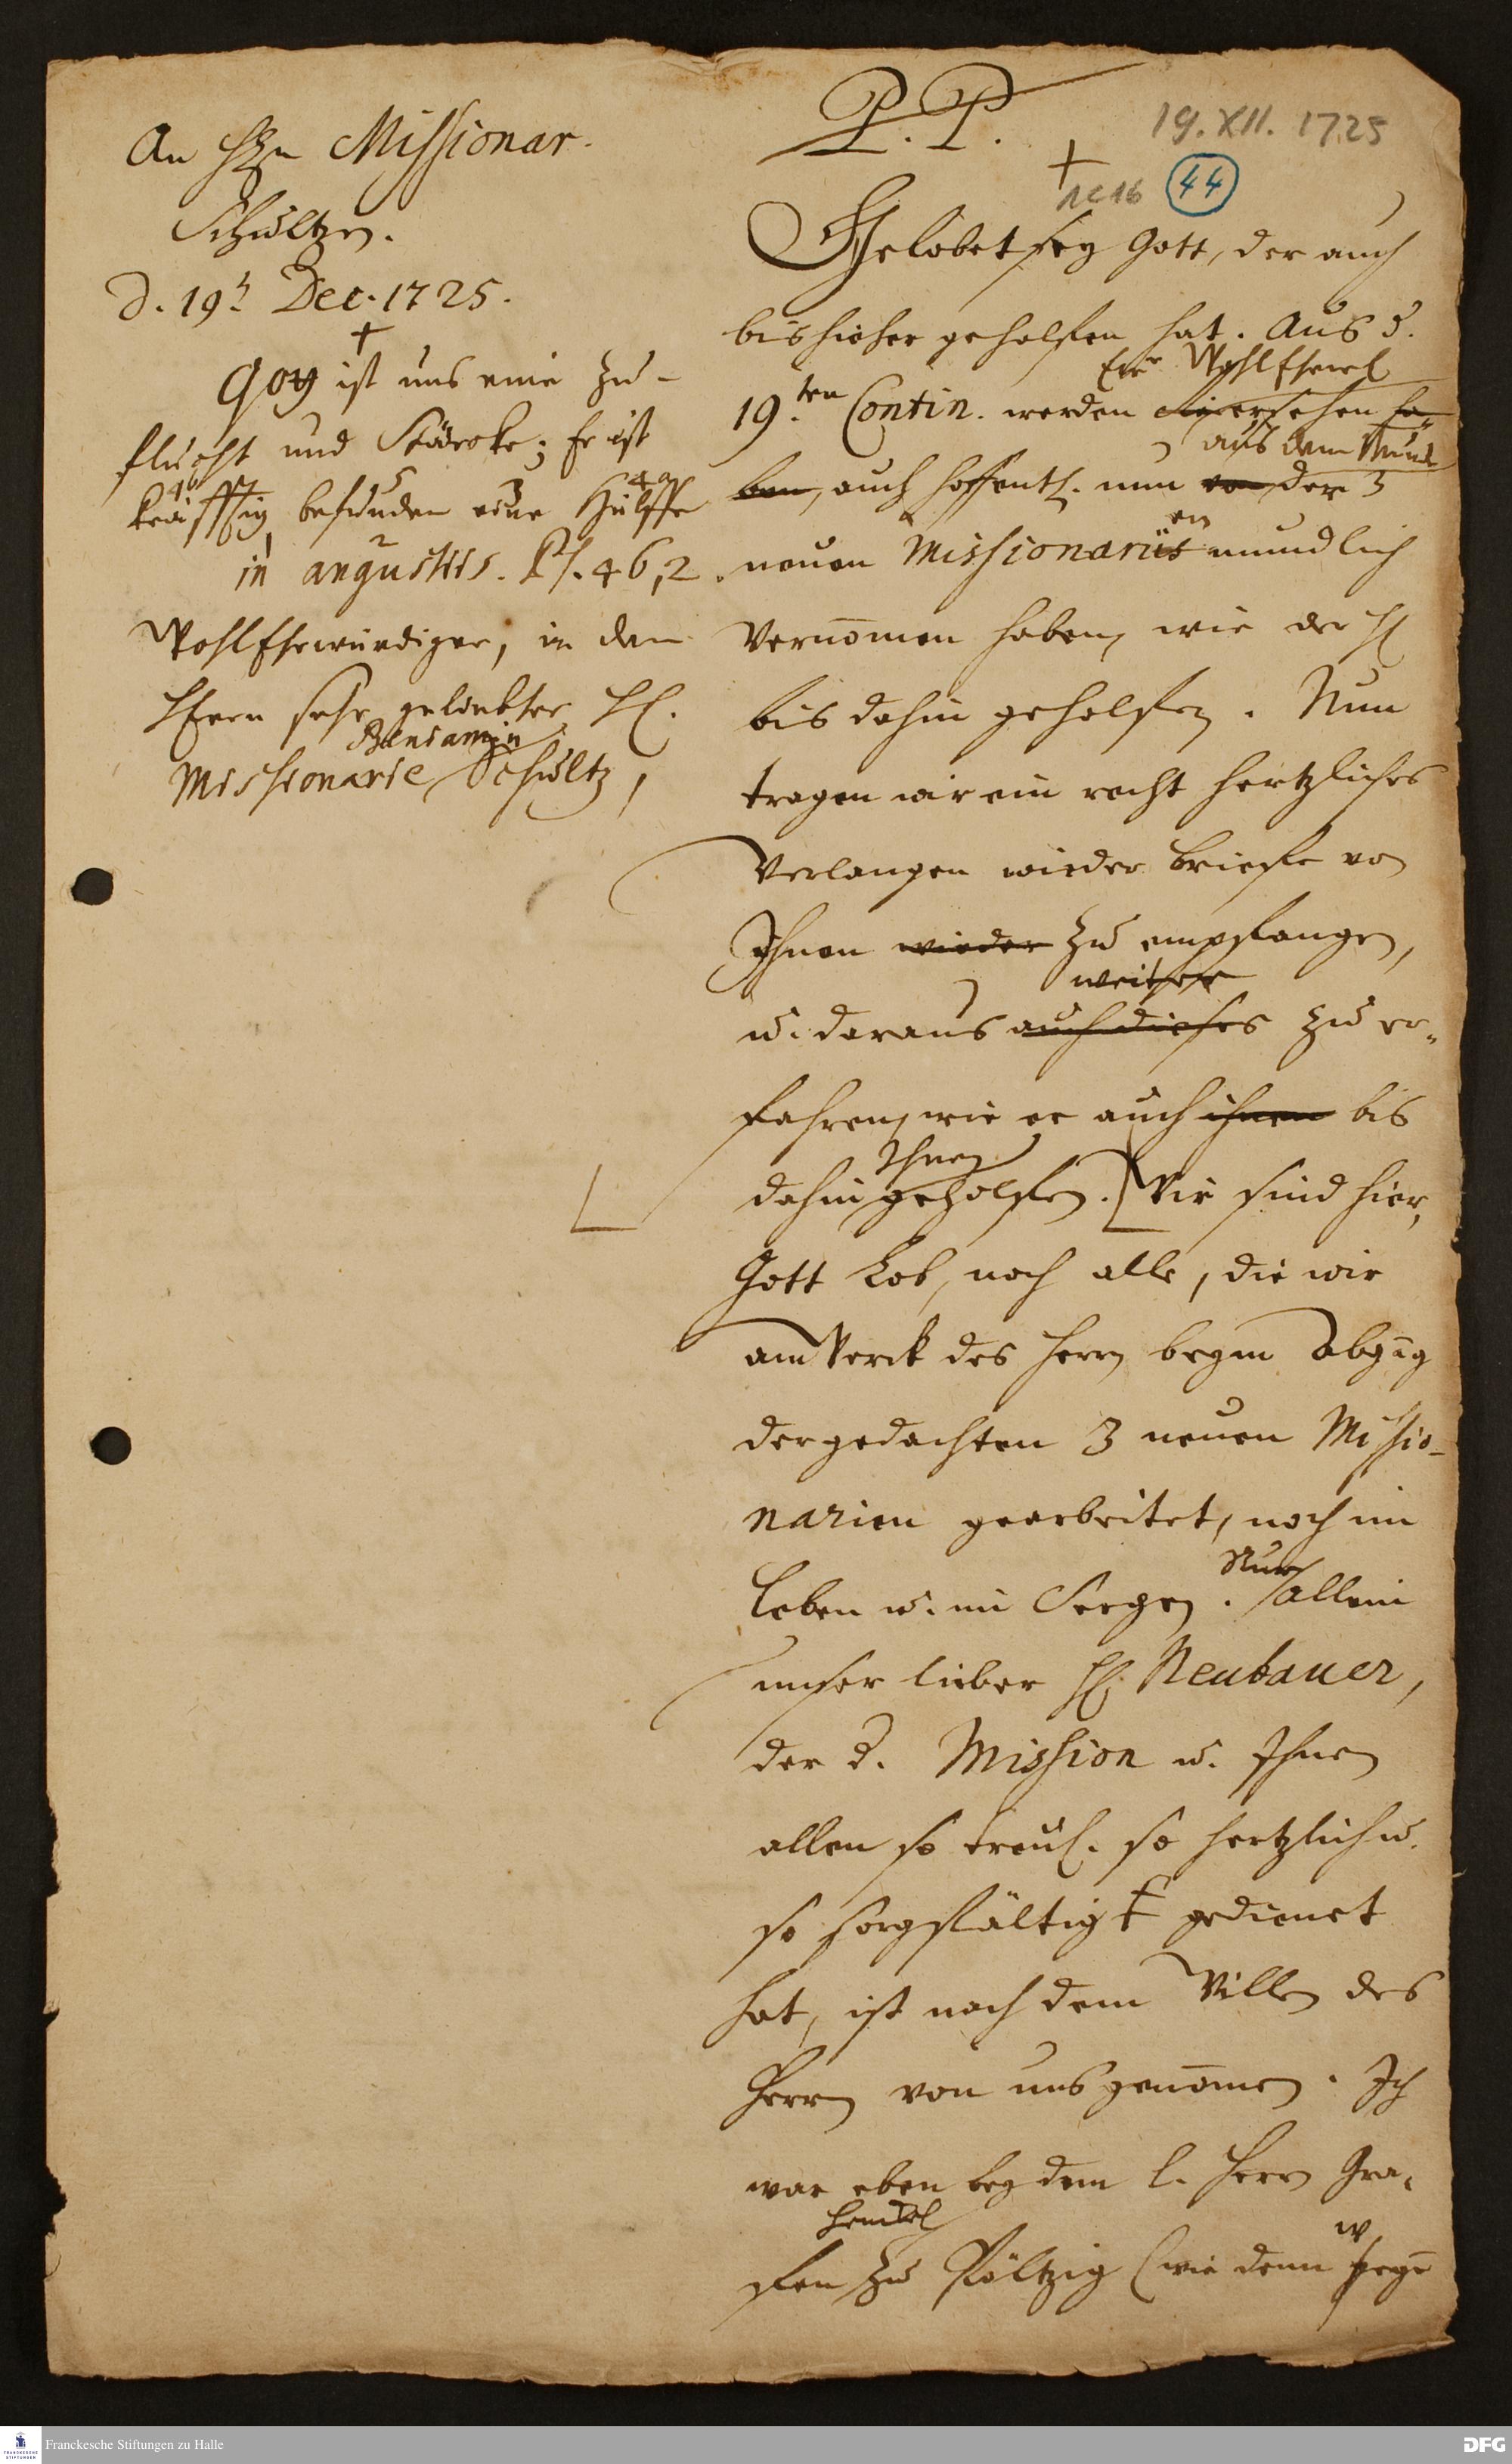 An Hrn Missionar.
Schultzen.
d. 19t Dec. 1725.
+
Gott ist uns eine Zu-
flucht und Stärcke; Er ist
kräfftig befunden eine Hülffe
in angustiis. Ps. 46,2.
WohlEhrwürdiger, in dem
HErrn sehr geliebter H.
Benjamin
Missionarie Schultz,
P. P.
19. XII. 1725
+
1C16 44
Gelobet sey Gott, der auch
bis hieher geholfen hat. Aus d.
Ewr WohlEhrw
19.ten Contin. werden Sie ersehen ha-
aus dem Munde
ben, auch hoffentl. nun von der 3
en
neuen Missionariis mundlich
vernomen haben, wie der H
bis dahin geholfen. Nun
tragen wir ein recht hertzliches
Verlangen wieder briefe von
Ihnen wieder zu empfangen,
weiter
u. daraus auch dieses zu er-
fahren, wie er auch ihnen bis
Ihnen
dahin geholfen. Wir sind hier,
Gott Lob, noch alle, die wir
am Werck des Herrn beym Abzug
der gedachten 3 neuen Missio-
narien gearbeitet, noch im
Nur
Leben u. im Seegen. Allein
unser lieber H. Neubauer,
der d. Mission u. Ihnen
allen so treul. so hertzlich u.
so sorgfältig gedienet
hat, ist nach dem Willen des
Herrn von uns genomen. Ich
war eben bey dem l. Herrn Gra-
Henckel
fen zu Pöltzig (wie denn